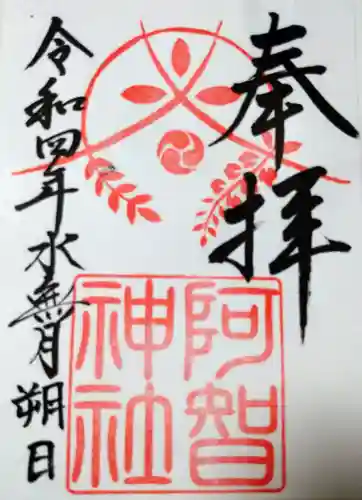 奉拝
阿智
神社
令和四年水無月朔日